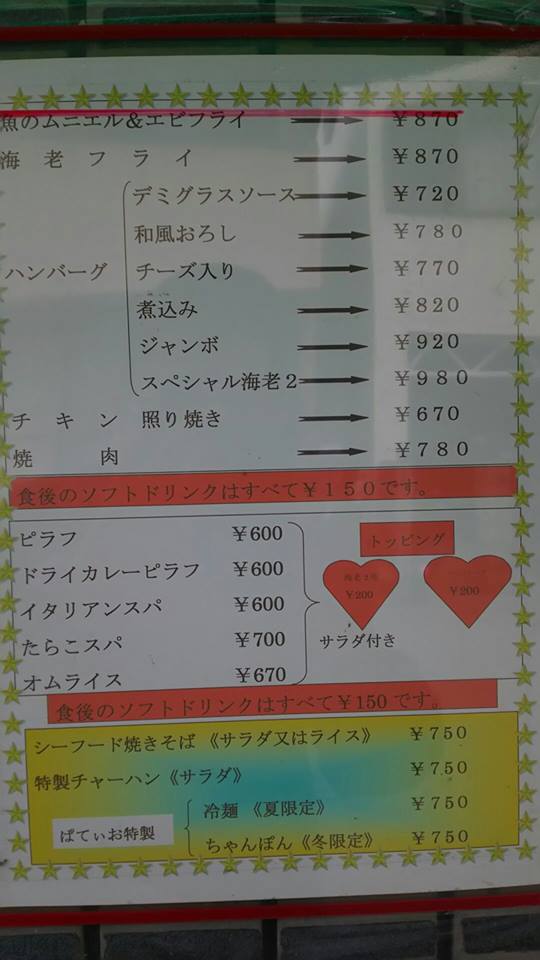 魚のムニエル＆エビフライ ￥870
海老フライ ￥870
デミグラスソース ￥720
和風おろし ￥780
ハンバーグ チーズ入り ￥770
煮込み ￥820
ジャンボ ￥920
スペシャル海老2 ￥980
チキン 照り焼き ￥670
焼肉 ￥780
食後のソフトドリンクはすべて￥150です。
ピラフ ￥600
トッピング
ドライカレーピラフ ￥600
￥200 ￥200
イタリアンスパ ￥600
たらこスパ ￥700
サラダ付き
オムライス ￥670
食後のソフトドリンクはすべて￥150です。
シーフード焼きそば《サラダ又はライス》 ￥750
特製チャーハン《サラダ》 ￥750
冷麺《夏限定》 ￥750
ぱてぃお特製
ちゃんぽん《冬限定》 ￥750